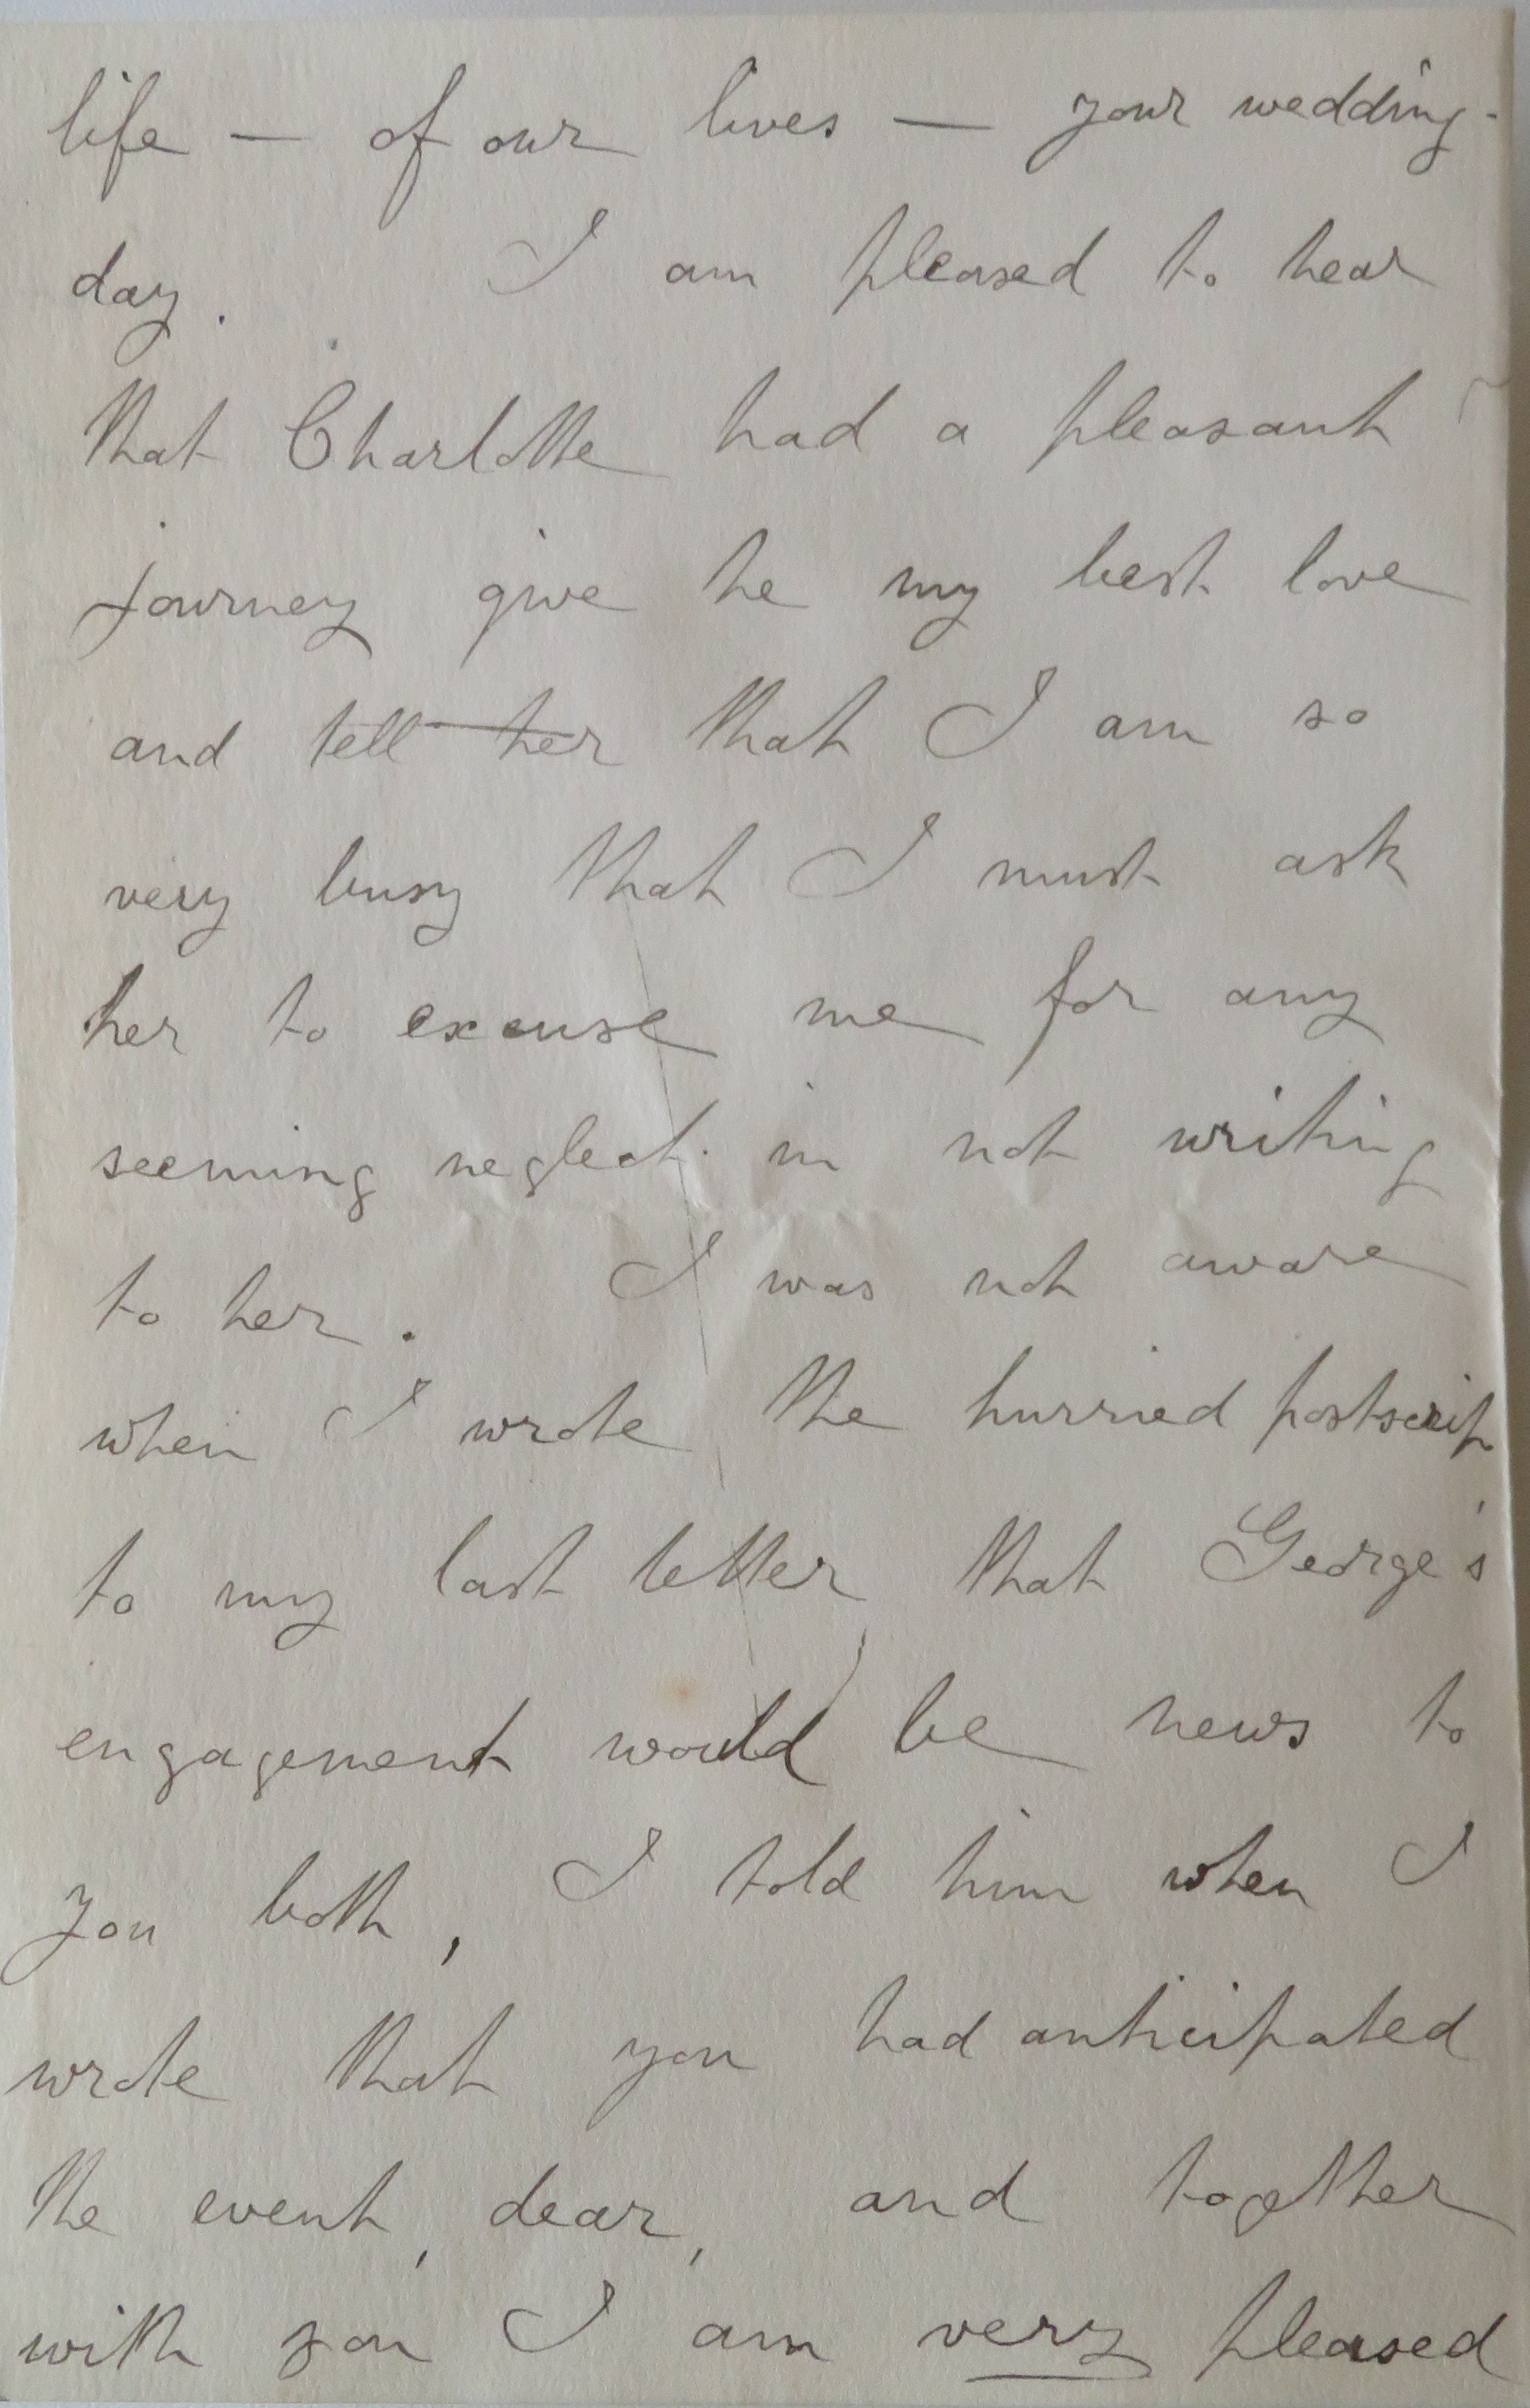 life — of our lives — your wedding-
day. I am pleased to hear
that Charlotte had a pleasant
journey give he my best love
and tell her that I am so
very busy that I must ask
her to excuse me for any
seeming neglect in not writing
to her. I was not aware
when I wrote the hurried postscrip
to my last letter that George's
engagement would be news to
you both, I told him when I
wrote that you had anticipated
the event, dear, and together
with you I am very pleased